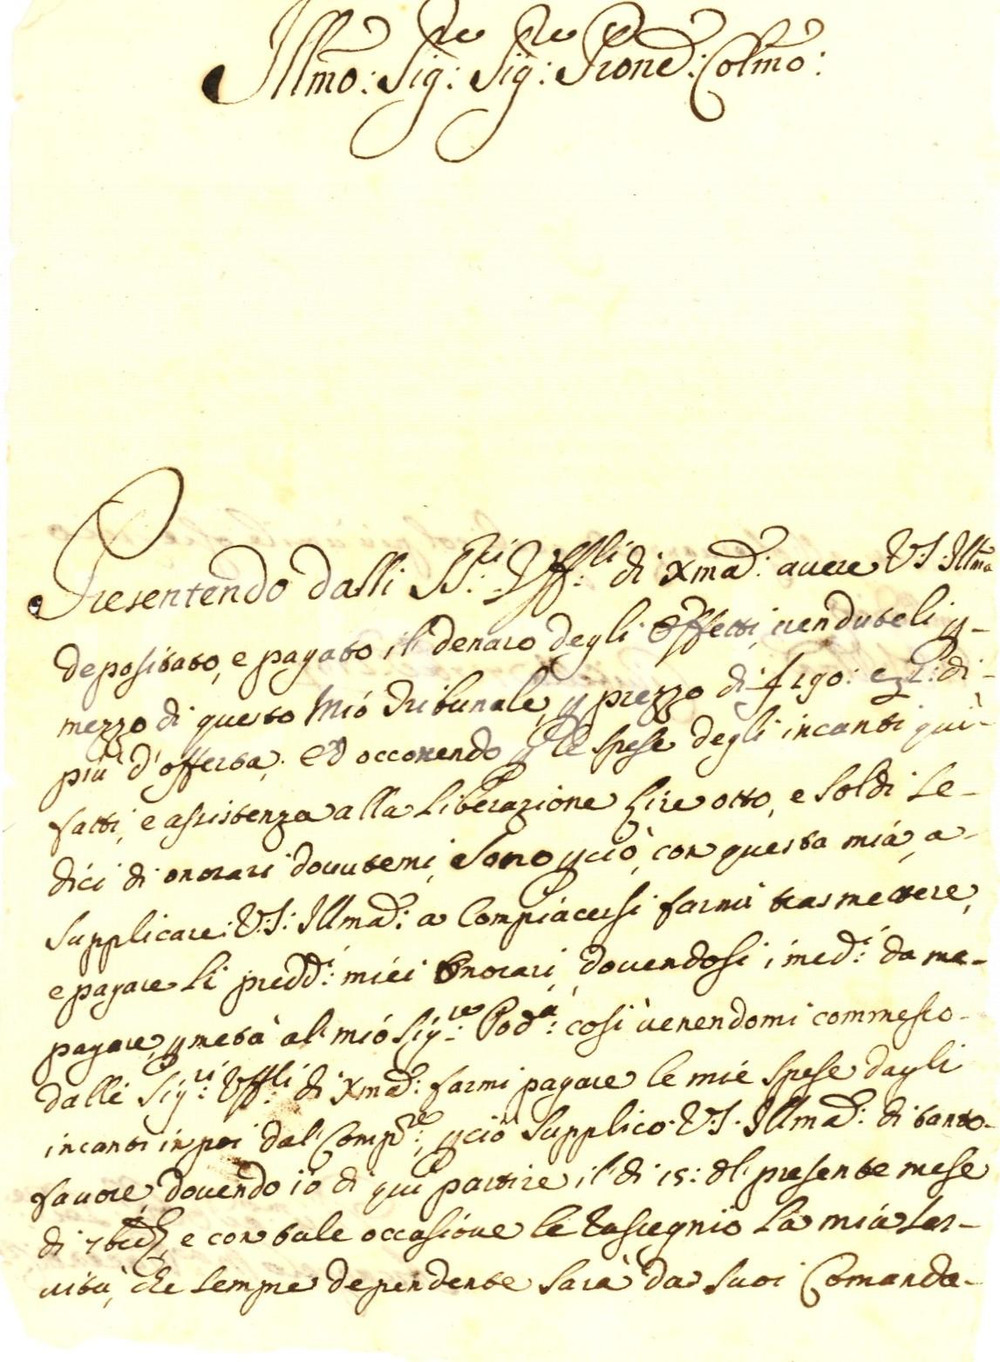 Illmo: Sig:re Sig:re Prone Colmo:
Presentendo dalli SS:ri Uff:li di Xmad: avere V.S. Illma
depositato, e pagato il denaro degli Effetti venduteli p
mezzo di questo mió Tribunale, p prezzo di
più d'offerta; ed occorrendo p le spese degli incanti quì
fatti, e assistenza alla liberazione Lire otto, e Soldi se-
dici di onorari dovutemi, Sono p ciò con questa miá, a
supplicare V:S: Illmad: a Compiacersi farmi trasmettere,
e pagare li predd:i miei Onorari, dovendosi i med:i da me
pagare, p metà al mió Sig:re Pod:à: cosi venendomi commesso
dalli Sig:ri Uff:li di Xmad: farmi pagare le mie spese dagli
incanti in poi dal Comp:re, p ciò Supplico V.S. Illmad: di tanto
favore, dovendo io di quì partire il dì 15: del presente mese
di 7bre, e con tale occasione le rassegnio la miá Ser-
vitù, che sempre dependente sarà da suoi Comanda-